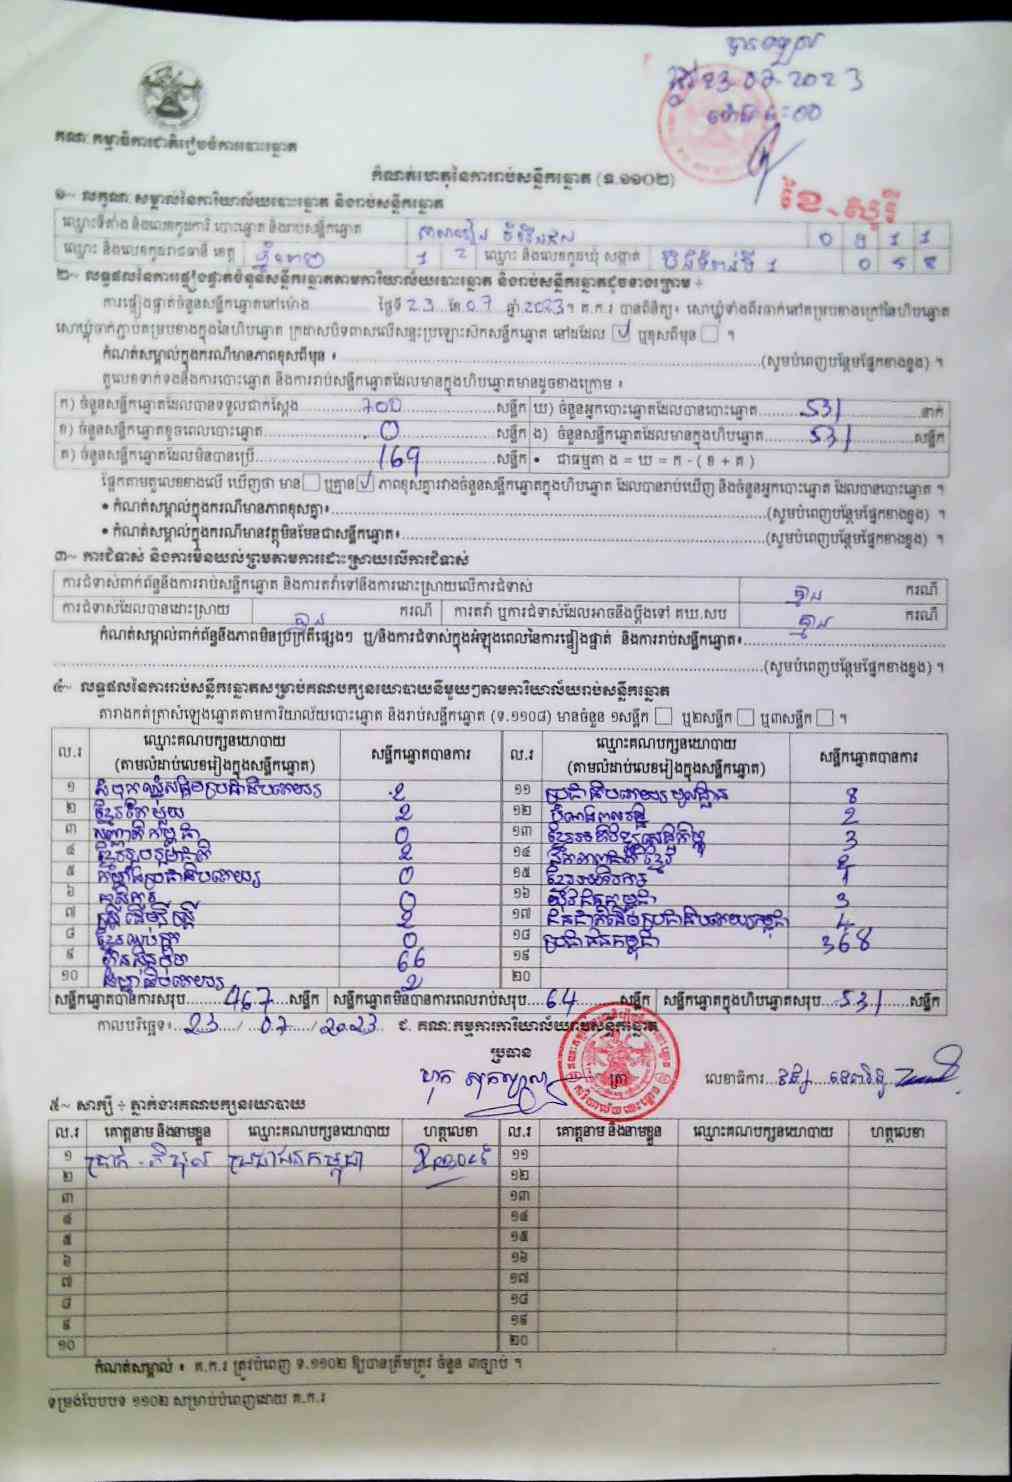 បានទទួល
ថ្ងៃ 23-07-2023
ម៉ោង
គណៈកម្មាធិការជាតិរៀបចំការបោះឆ្នោត
កំណត់ហេតុនៃការរាប់សន្លឹកឆ្នោត (ទ.១១០២)
១~ លក្ខណៈសម្គាល់នៃការិយាល័យបោះឆ្នោត និងរាប់សន្លឹកឆ្នោត
ឈ្មោះទីតាំង និងលេខកូដការិ.បោះឆ្នោត និងរាប់សន្លឹកឆ្នោត 0 1 1
ឈ្មោះ និងលេខកូដរាជធានី ខេត្ត ភ្នំពេញ 1 2 ឈ្មោះ និងលេខកូដឃុំ សង្កាត់ ទី 1 0
២~ លទ្ធផលនៃការផ្ទៀងផ្ទាត់ចំនួនសន្លឹកឆ្នោតតាមការិយាល័យបោះឆ្នោត និងរាប់សន្លឹកឆ្នោតដូចខាងក្រោម ÷
ការផ្ទៀងផ្ទាត់ចំនួនសន្លឹកឆ្នោតនៅម៉ោង ថ្ងៃទី 23 ខែ 07 ឆ្នាំ 2023 ។ គ.ក.រ បានពិនិត្យ៖ សោឃ្លុំទាំងពីរចាក់នៅគម្របខាងក្រៅនៃហិបឆ្នោត
សោឃ្លុំចាក់ភ្ជាប់គម្របខាងក្នុងនៃហិបឆ្នោត ក្រដាសបិទពាសលើសន្ទះប្រឡោះស៊កសន្លឹកឆ្នោត នៅដដែល ☑ ឬខុសពីមុន ☐ ។
កំណត់សម្គាល់ក្នុងករណីមានភាពខុសពីមុន ៖ (សូមបំពេញបន្ថែមផ្នែកខាងខ្នង) ។
តួលេខទាក់ទងនឹងការបោះឆ្នោត និងការរាប់សន្លឹកឆ្នោតដែលមានក្នុងហិបឆ្នោតមានដូចខាងក្រោម ៖
ក) ចំនួនសន្លឹកឆ្នោតដែលបានទទួលជាក់ស្តែង 700 សន្លឹក ឃ) ចំនួនអ្នកបោះឆ្នោតដែលបានបោះឆ្នោត 531 នាក់
ខ) ចំនួនសន្លឹកឆ្នោតខូចពេលបោះឆ្នោត 0 សន្លឹក ង) ចំនួនសន្លឹកឆ្នោតដែលមានក្នុងហិបឆ្នោត 531 សន្លឹក
គ) ចំនួនសន្លឹកឆ្នោតដែលមិនបានប្រើ 169 សន្លឹក • ជាធម្មតា ង = ឃ = ក - ( ខ + គ )
ផ្អែកតាមតួលេខខាងលើ ឃើញថា មាន ☐ ឬគ្មាន ☑ ភាពខុសគ្នារវាងចំនួនសន្លឹកឆ្នោតក្នុងហិបឆ្នោត ដែលបានរាប់ឃើញ និងចំនួនអ្នកបោះឆ្នោត ដែលបានបោះឆ្នោត ។
• កំណត់សម្គាល់ក្នុងករណីមានភាពខុសគ្នា៖ (សូមបំពេញបន្ថែមផ្នែកខាងខ្នង) ។
• កំណត់សម្គាល់ក្នុងករណីមានវត្ថុមិនមែនជាសន្លឹកឆ្នោត៖ (សូមបំពេញបន្ថែមផ្នែកខាងខ្នង) ។
៣~ ការជំទាស់ និងការមិនយល់ព្រមតាមការដោះស្រាយលើការជំទាស់
ការជំទាស់ពាក់ព័ន្ធនឹងការរាប់សន្លឹកឆ្នោត និងការតវ៉ាទៅនឹងការដោះស្រាយលើការជំទាស់ គ្មាន ករណី
ការជំទាស់ដែលបានដោះស្រាយ គ្មាន ករណី ការតវ៉ា ឬការជំទាស់ដែលអាចនឹងប្តឹងទៅ គឃ.សប គ្មាន ករណី
កំណត់សម្គាល់ពាក់ព័ន្ធនឹងភាពមិនប្រក្រតីផ្សេងៗ ឬ/និងការជំទាស់ក្នុងអំឡុងពេលនៃការផ្ទៀងផ្ទាត់ និងការរាប់សន្លឹកឆ្នោត៖
(សូមបំពេញបន្ថែមផ្នែកខាងខ្នង) ។
៤~ លទ្ធផលនៃការរាប់សន្លឹកឆ្នោតសម្រាប់គណបក្សនយោបាយនីមួយៗតាមការិយាល័យរាប់សន្លឹកឆ្នោត
តារាងកត់ត្រាសំឡេងឆ្នោតតាមការិយាល័យបោះឆ្នោត និងរាប់សន្លឹកឆ្នោត (ទ.១១០៨) មានចំនួន ១សន្លឹក ☐ ឬ២សន្លឹក ☐ ឬ៣សន្លឹក ☐ ។
ល.រ ឈ្មោះគណបក្សនយោបាយ (តាមលំដាប់លេខរៀងក្នុងសន្លឹកឆ្នោត) សន្លឹកឆ្នោតបានការ ល.រ ឈ្មោះគណបក្សនយោបាយ (តាមលំដាប់លេខរៀងក្នុងសន្លឹកឆ្នោត) សន្លឹកឆ្នោតបានការ
១ សំបុកឃ្មុំសង្គមប្រជាធិបតេយ្យ 2 ១១ ប្រជាធិបតេយ្យមូលដ្ឋាន 8
២ ខ្មែរតែមួយ 2 ១២ បំណងពលរដ្ឋ 2
៣ សញ្ជាតិកម្ពុជា 0 ១៣ ខ្មែរអភិវឌ្ឍន៍សេដ្ឋកិច្ច 3
៤ ខ្មែររួបរួមជាតិ 2 ១៤ ឯកភាពជាតិខ្មែរ 2
៥ កម្លាំងប្រជាធិបតេយ្យ 0 ១៥ ខ្មែរអភិរក្ស 1
៦ កសិករ 0 ១៦ យុវជនកម្ពុជា 3
៧ ស្ត្រីដើម្បីស្ត្រី 2 ១៧ ជនជាតិដើមប្រជាធិបតេយ្យកម្ពុជា 4
៨ ខ្មែរឈប់ក្រ 0 ១៨ ប្រជាជនកម្ពុជា 368
៩ ហ៊្វុនស៊ិនប៉ិច 66 ១៩
១០ ធម្មាធិបតេយ្យ 2 ២០
សន្លឹកឆ្នោតបានការសរុប 467 សន្លឹក សន្លឹកឆ្នោតមិនបានការពេលរាប់សរុប 64 សន្លឹក សន្លឹកឆ្នោតក្នុងហិបឆ្នោតសរុប 531 សន្លឹក
កាលបរិច្ឆេទ៖ 23 / 07 / 2023 ជ. គណៈកម្មការការិយាល័យរាប់សន្លឹកឆ្នោត
ប្រធាន
ត្រា
លេខាធិការ
៥~ សាក្សី ÷ ភ្នាក់ងារគណបក្សនយោបាយ
ល.រ គោត្តនាម និងនាមខ្លួន ឈ្មោះគណបក្សនយោបាយ ហត្ថលេខា ល.រ គោត្តនាម និងនាមខ្លួន ឈ្មោះគណបក្សនយោបាយ ហត្ថលេខា
១ ប្រជាជនកម្ពុជា ១១
២ ១២
៣ ១៣
៤ ១៤
៥ ១៥
៦ ១៦
៧ ១៧
៨ ១៨
៩ ១៩
១០ ២០
កំណត់សម្គាល់ ៖ គ.ក.រ ត្រូវបំពេញ ទ.១១០២ ឱ្យបានត្រឹមត្រូវ ចំនួន ៣ច្បាប់ ។
ទម្រង់បែបបទ ១១០២ សម្រាប់បំពេញដោយ គ.ក.រ